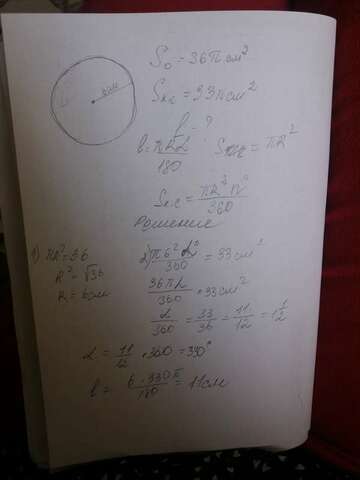 6см
S₀ = 36π см²
Sк.с = 33π см²
l - ?
l = πRα/180 ; Sкр = πR²
Sк.с = πR²n°/360
Решение
1) πR² = 36
R² = √36
R = 6см
2) π6²α°/360 = 33 см²
36πα/360 · 33 см²
α/360 = 33/36 = 11/12 = 1 1/2
α = 11/12 · 360 = 330°
l = 6·330π/180 = 11 см